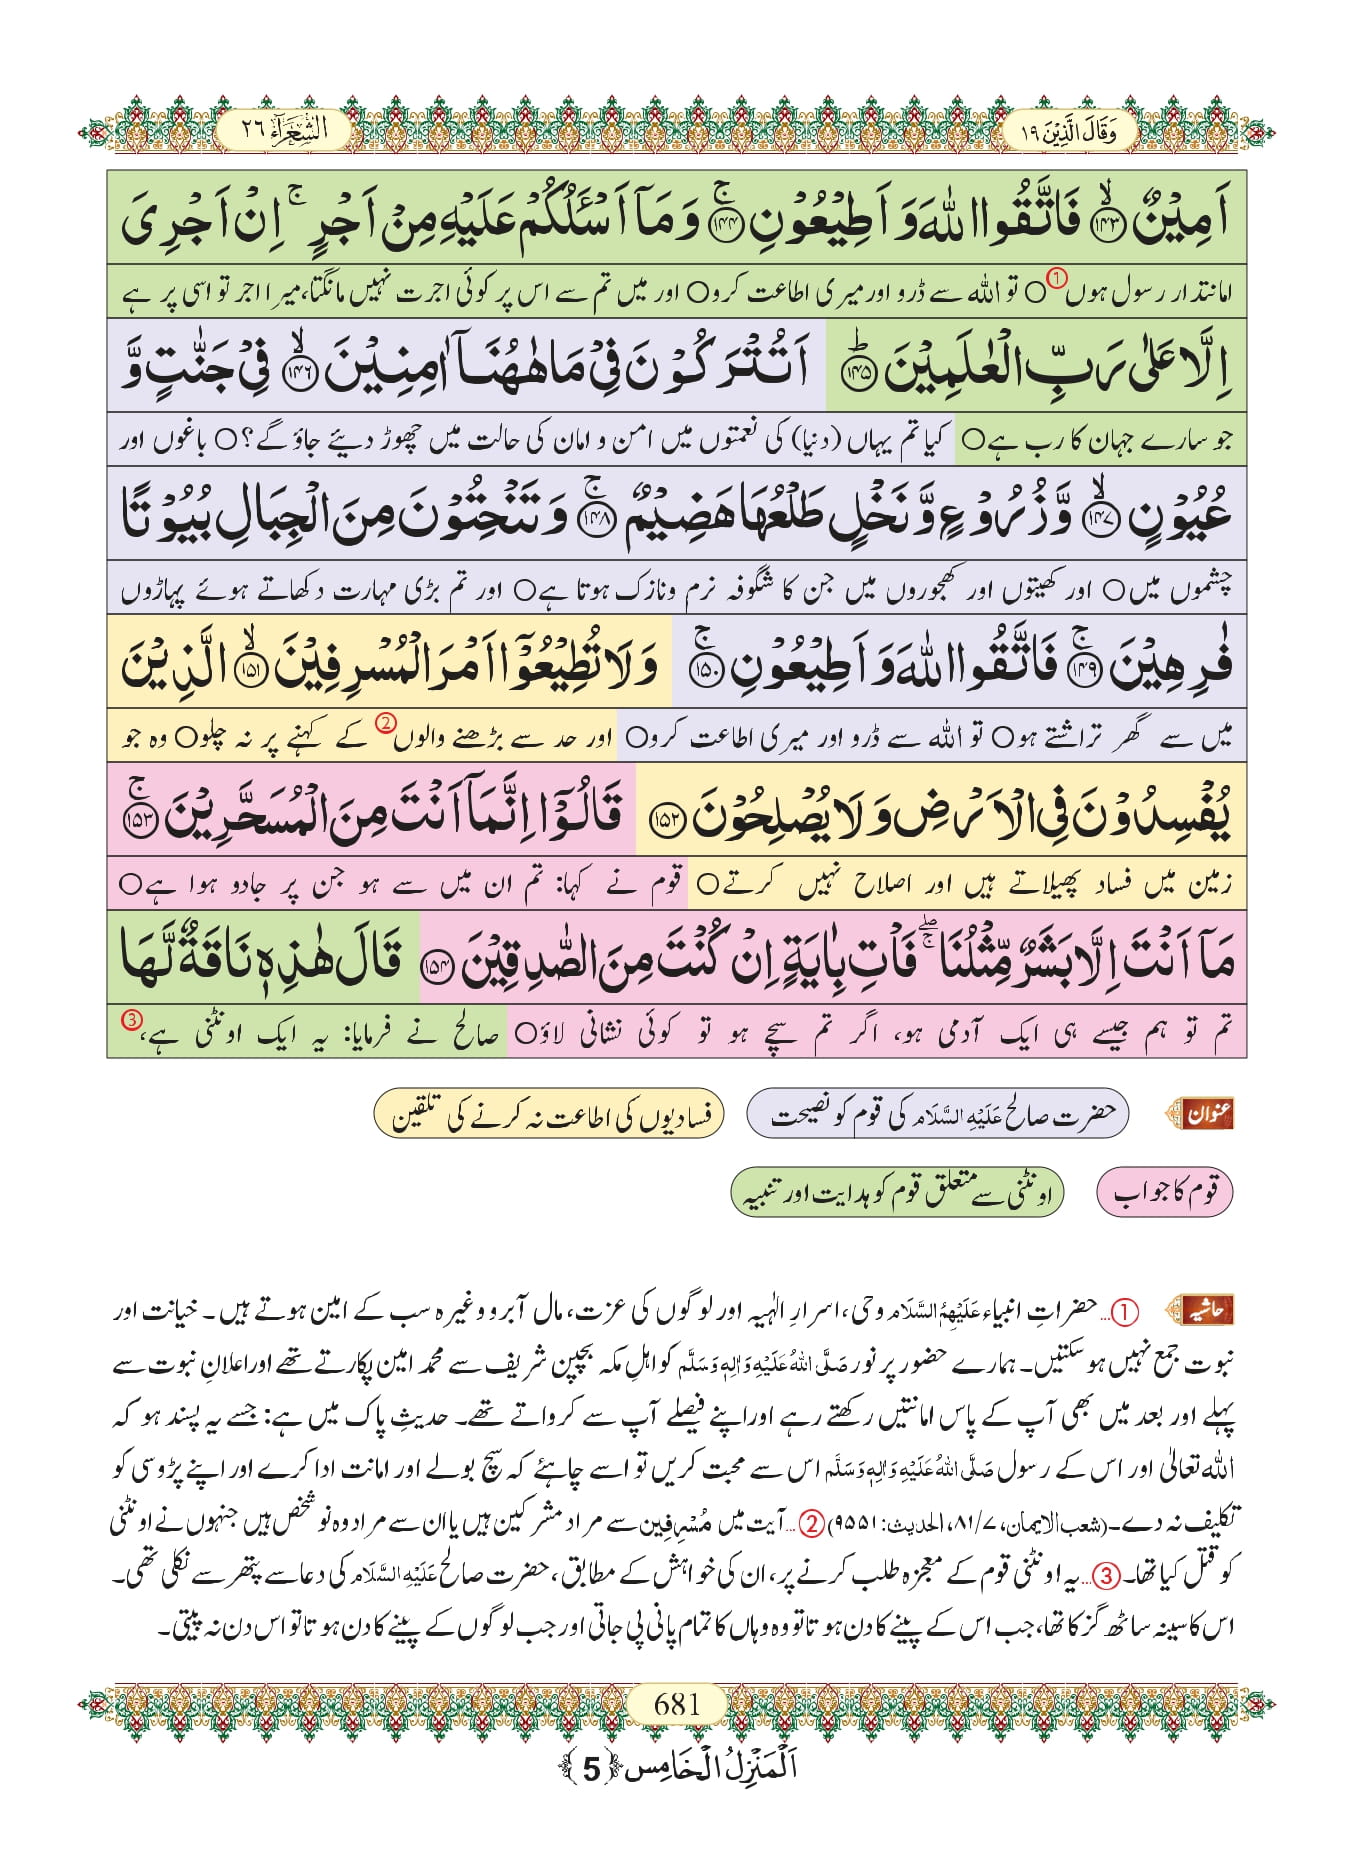 وَقَالَ الَّذِیْنَ ۱۹
الشُّعَرَآء ۲۶
اَمِیْنٌۙ۝۱۴۳ فَاتَّقُوا اللّٰهَ وَ اَطِیْعُوْنِۚ۝۱۴۴ وَ مَاۤ اَسْـَٔلُكُمْ عَلَیْهِ مِنْ اَجْرٍۚ اِنْ اَجْرِیَ
امانتدار رسول ہوں① ○ تو اللہ سے ڈرو اور میری اطاعت کرو○ اور میں تم سے اس پر کوئی اجرت نہیں مانگتا، میرا اجر تو اسی پر ہے
اِلَّا عَلٰى رَبِّ الْعٰلَمِیْنَؕ۝۱۴۵ اَتُتْرَكُوْنَ فِیْ مَا هٰهُنَاۤ اٰمِنِیْنَۙ۝۱۴۶ فِیْ جَنّٰتٍ وَّ
جو سارے جہان کا رب ہے○ کیا تم یہاں (دنیا) کی نعمتوں میں امن و امان کی حالت میں چھوڑ دیئے جاؤ گے؟○ باغوں اور
عُیُوْنٍۙ۝۱۴۷ وَّ زُرُوْعٍ وَّ نَخْلٍ طَلْعُهَا هَضِیْمٌۚ۝۱۴۸ وَ تَنْحِتُوْنَ مِنَ الْجِبَالِ بُیُوْتًا
چشموں میں○ اور کھیتوں اور کھجوروں میں جن کا شگوفہ نرم ونازک ہوتا ہے○ اور تم بڑی مہارت دکھاتے ہوئے پہاڑوں
فٰرِهِیْنَۚ۝۱۴۹ فَاتَّقُوا اللّٰهَ وَ اَطِیْعُوْنِۚ۝۱۵۰ وَ لَا تُطِیْعُوْۤا اَمْرَ الْمُسْرِفِیْنَۙ۝۱۵۱ الَّذِیْنَ
میں سے گھر تراشتے ہو○ تو اللہ سے ڈرو اور میری اطاعت کرو○ اور حد سے بڑھنے والوں② کے کہنے پر نہ چلو○ وہ جو
یُفْسِدُوْنَ فِی الْاَرْضِ وَ لَا یُصْلِحُوْنَ۝۱۵۲ قَالُوْۤا اِنَّمَاۤ اَنْتَ مِنَ الْمُسَحَّرِیْنَۚ۝۱۵۳
زمین میں فساد پھیلاتے ہیں اور اصلاح نہیں کرتے○ قوم نے کہا: تم ان میں سے ہو جن پر جادو ہوا ہے○
مَاۤ اَنْتَ اِلَّا بَشَرٌ مِّثْلُنَا ۚۖ فَاْتِ بِاٰیَةٍ اِنْ كُنْتَ مِنَ الصّٰدِقِیْنَ۝۱۵۴ قَالَ هٰذِهٖ نَاقَةٌ لَّهَا
تم تو ہم جیسے ہی ایک آدمی ہو، اگر تم سچے ہو تو کوئی نشانی لاؤ○ صالح نے فرمایا: یہ ایک اونٹنی ہے،③
عنوان حضرت صالح عَلَیْهِ السَّلَام کی قوم کو نصیحت فسادیوں کی اطاعت نہ کرنے کی تلقین
قوم کا جواب اونٹنی سے متعلق قوم کو ہدایت اور تنبیہ
حاشیہ ①...حضراتِ انبیاء عَلَیْهِمُ السَّلَام وحی، اسرارِ الٰہیہ اور لوگوں کی عزت، مال آبرو وغیرہ سب کے امین ہوتے ہیں۔ خیانت اور
نبوت جمع نہیں ہو سکتیں۔ ہمارے حضور پر نور صَلَّى اللهُ عَلَیْهِ وَاٰلِهٖ وَسَلَّم کو اہلِ مکہ بچپن شریف سے محمد امین پکارتے تھے اور اعلانِ نبوت سے
پہلے اور بعد میں بھی آپ کے پاس امانتیں رکھتے رہے اور اپنے فیصلے آپ سے کرواتے تھے۔ حدیثِ پاک میں ہے: جسے یہ پسند ہو کہ
اللہ تعالیٰ اور اس کے رسول صَلَّى اللهُ عَلَیْهِ وَاٰلِهٖ وَسَلَّم اس سے محبت کریں تو اسے چاہئے کہ سچ بولے اور امانت ادا کرے اور اپنے پڑوسی کو
تکلیف نہ دے۔ (شعب الایمان، ۷/۸۱، الحدیث: ۹۵۵۱) ②...آیت میں مُسْرِفِین سے مراد مشرکین ہیں یا ان سے مراد وہ نو شخص ہیں جنہوں نے اونٹنی
کو قتل کیا تھا۔ ③...یہ اونٹنی قوم کے معجزہ طلب کرنے پر، ان کی خواہش کے مطابق، حضرت صالح عَلَیْهِ السَّلَام کی دعا سے پتھر سے نکلی تھی۔
اس کا سینہ ساٹھ گز کا تھا، جب اس کے پینے کا دن ہوتا تو وہ وہاں کا تمام پانی پی جاتی اور جب لوگوں کے پینے کا دن ہوتا تو اس دن نہ پیتی۔
681
اَلْمَنْزِلُ الْخَامِس ﴿5﴾